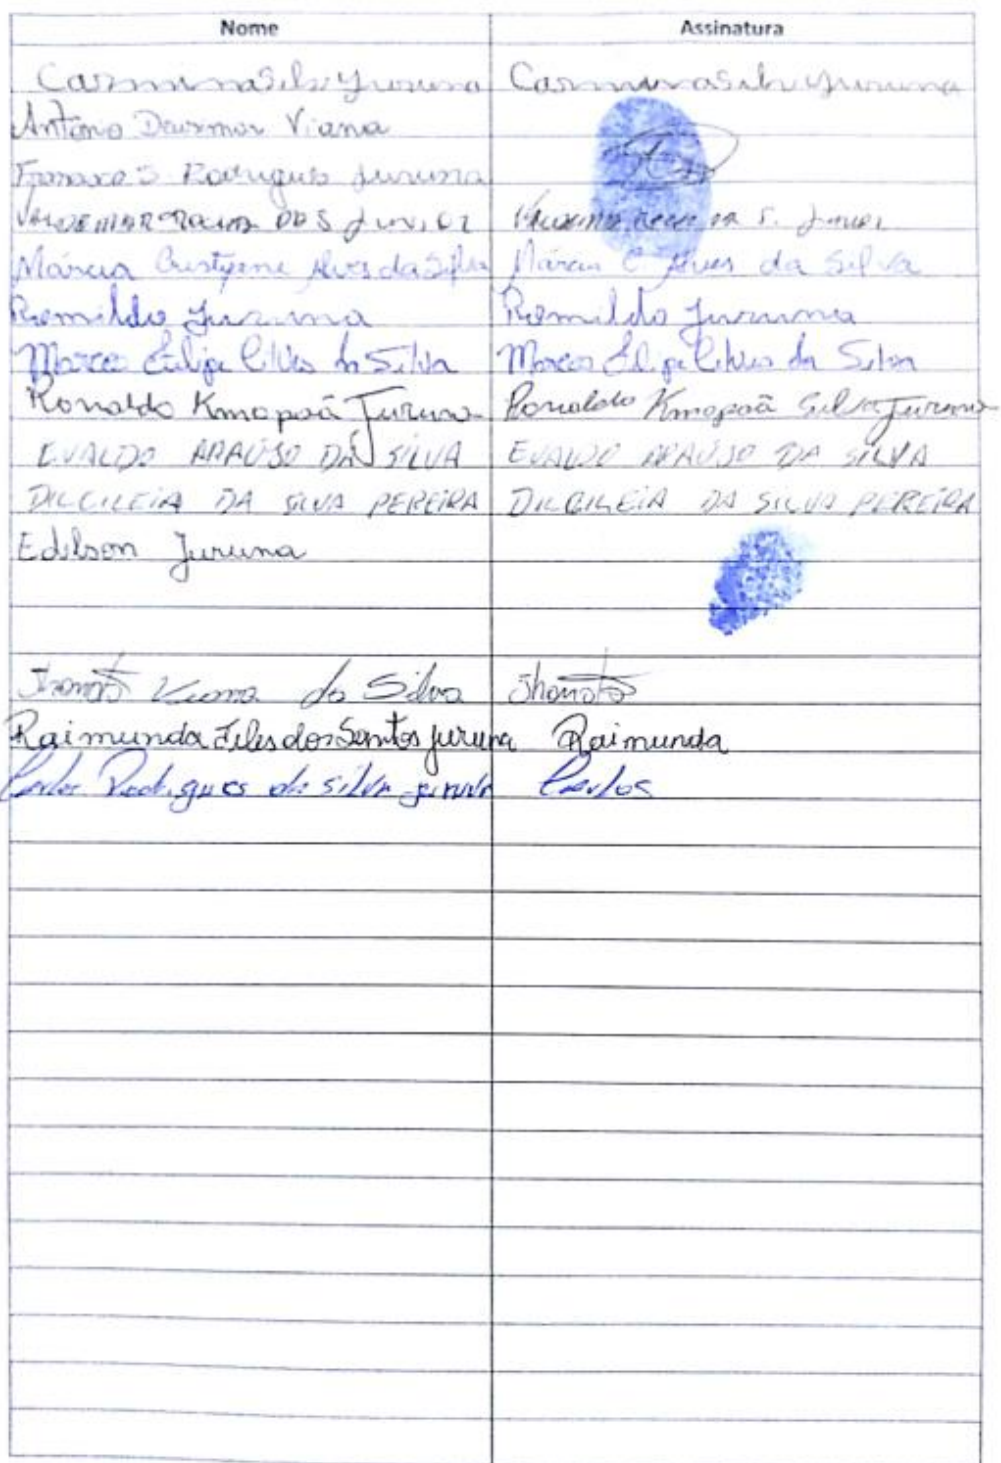 Nome Assinatura
Carmina Silva Juruna Carmina Silva Juruna
Antônio Viana
Rodrigues Juruna
Junior Junior
Márcia Cristyeme Alves da Silva Márcia C Alves da Silva
Romildo Juruna Romildo Juruna
Marcos Filipe Alves da Silva Marcos Filipe Alves da Silva
Ronaldo Kmopoã Juruna Ronaldo Kmopoã Silva Juruna
EVALDO ARAÚJO DA SILVA EVALDO ARAÚJO DA SILVA
DILCILEIA DA SILVA PEREIRA DILCILEIA DA SILVA PEREIRA
Edilson Juruna
da Silva Jhonata
Raimunda Teles dos Santos juruna Raimunda
Carlos Rodrigues da silva juruna Carlos